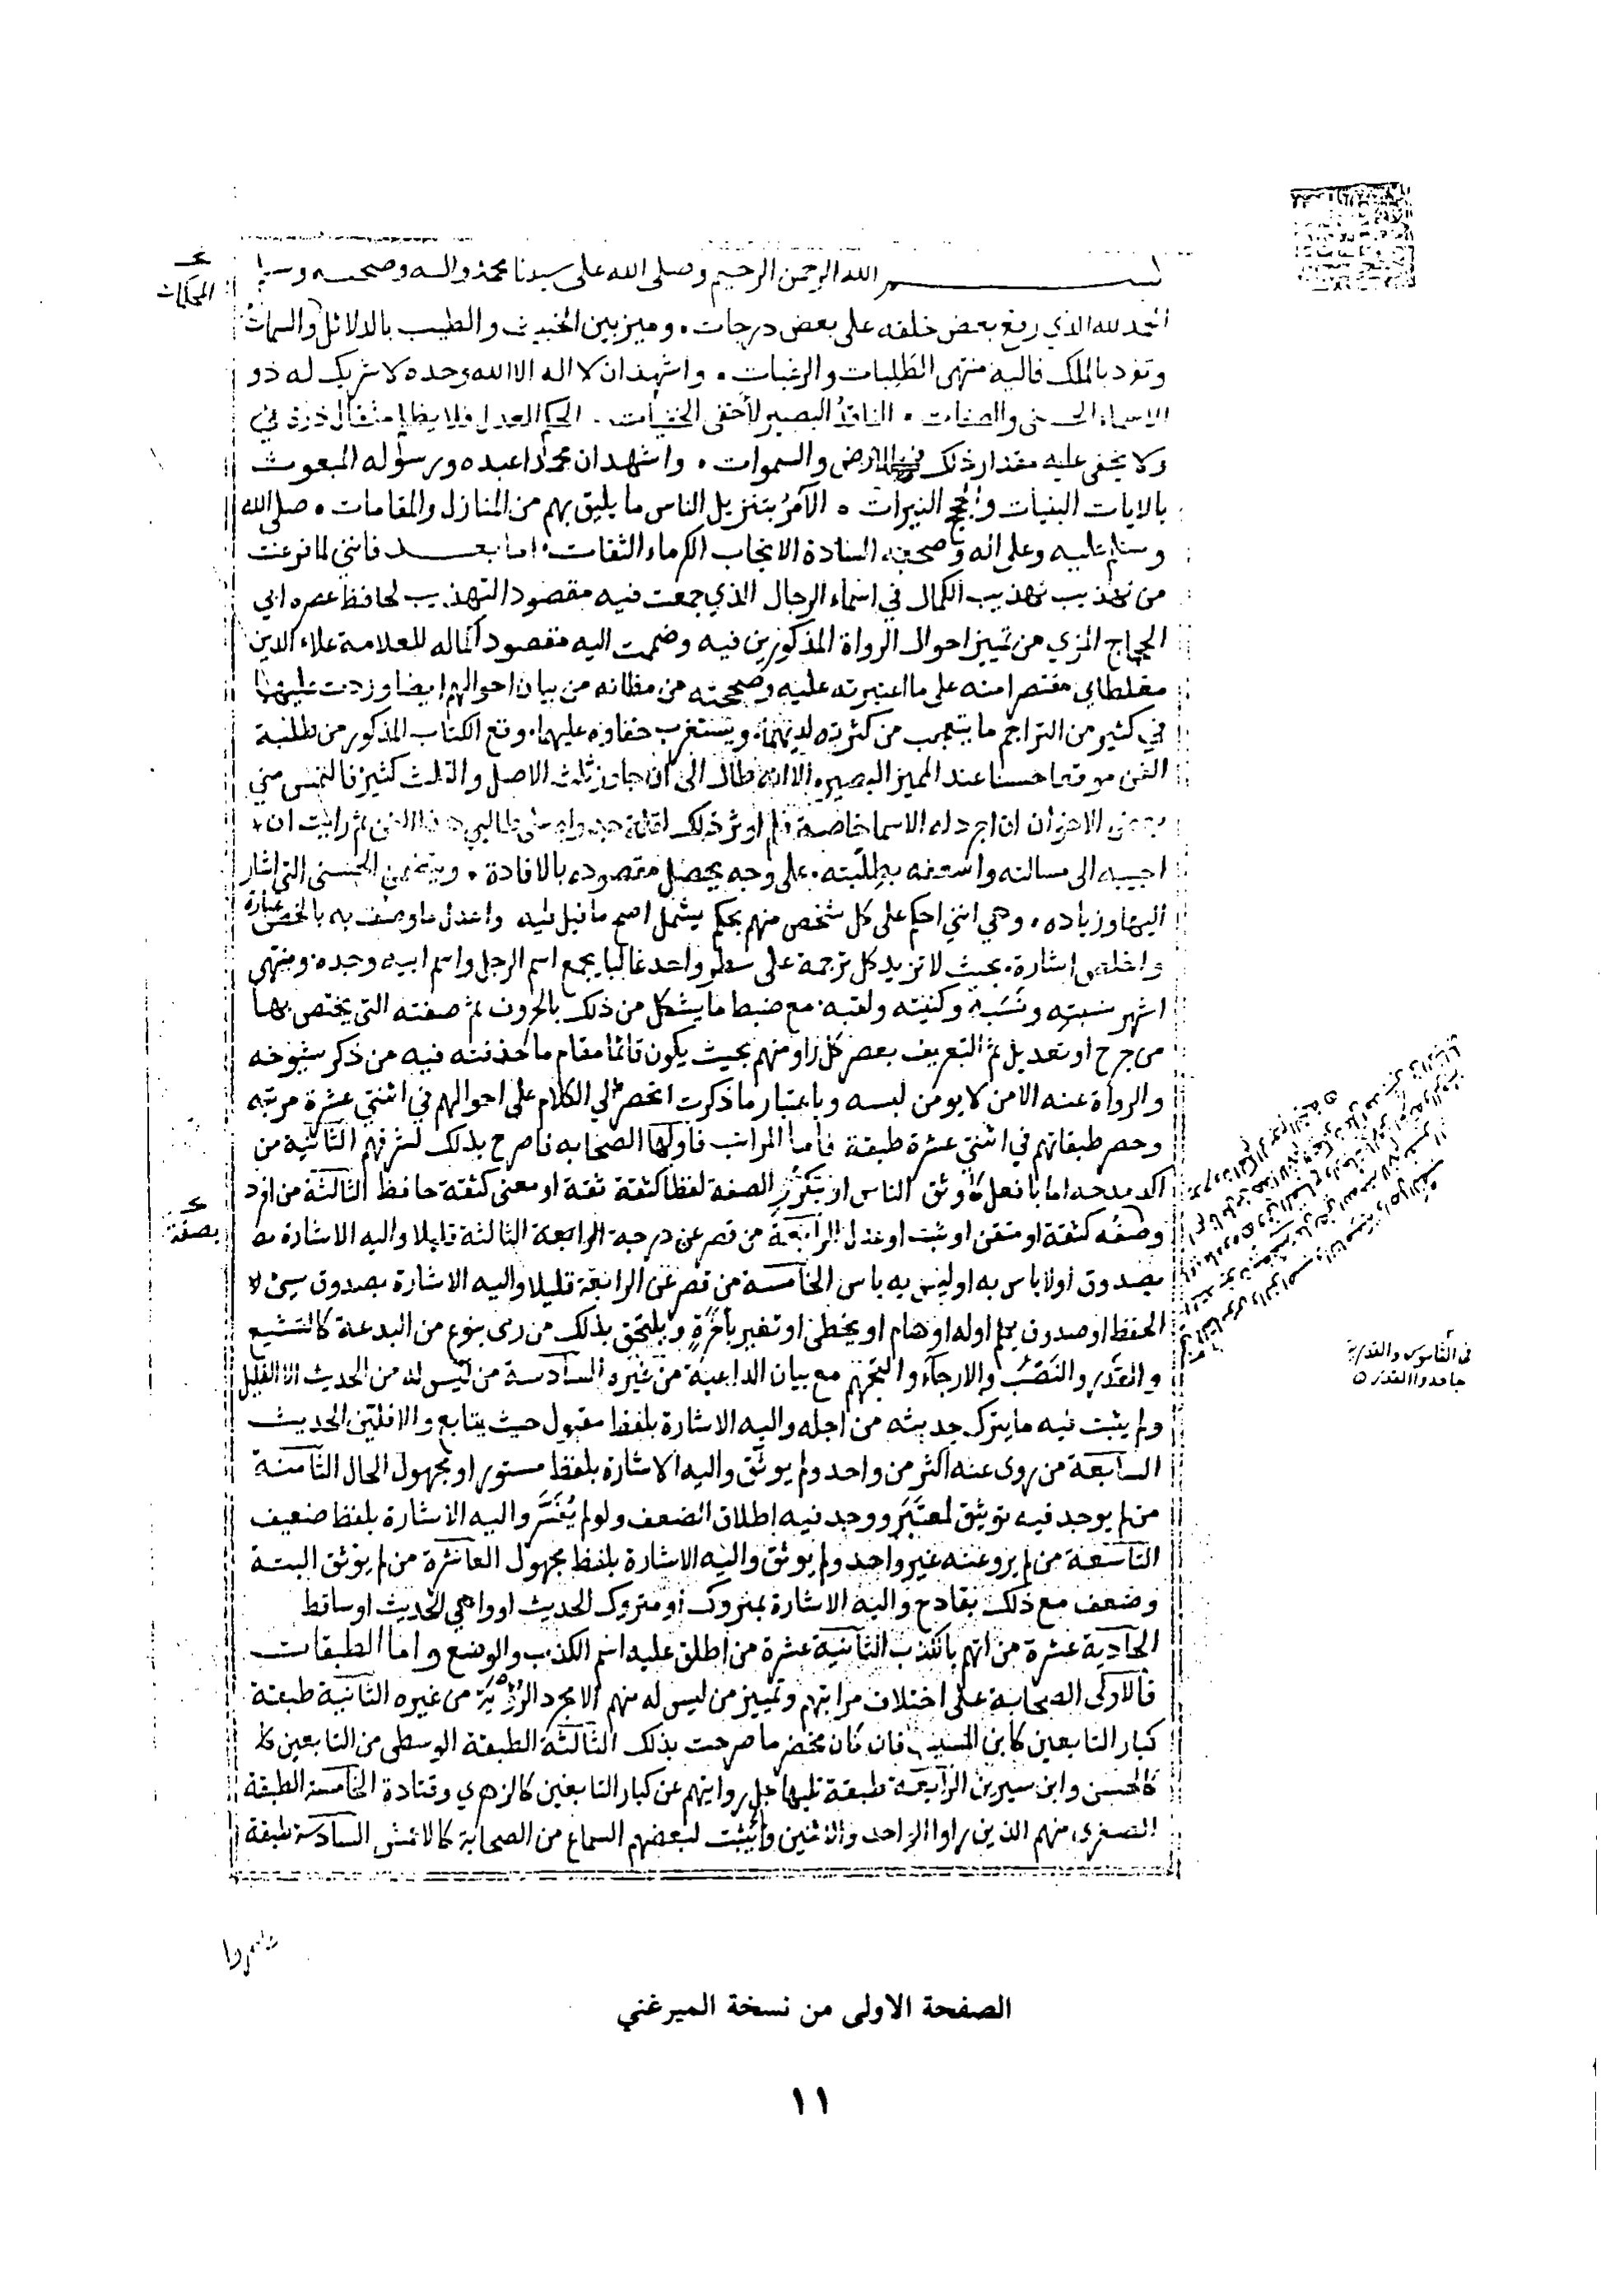 بســــــم الله الرحمن الرحيم وصلى الله على سيدنا محمد واله وصحبه وسلم
الحمد لله الذي رفع بعض خلقه على بعض درجات . وميز بين الخبيث والطيب بالدلائل والسمات
وتفرد بالملك فاليه منتهى الطلبات والرغبات . واشهد ان لا اله الا الله وحده لا شريك له ذو
الاسماء الحسنى والصفات . الناقد البصير لأخفى الخفيات . الحكم العدل فلا يظلم مثقال ذرة
ولا يخفى عليه مقدار ذلك في الارض والسموات . واشهد ان محمدا عبده ورسوله المبعوث
بالايات البينات والحجج النيرات . الآمر بتنزيل الناس ما يليق بهم من المنازل والمقامات . صلى الله
وسلم عليه وعلى اله وصحبه السادة الانجاب الكرماء الثقات . اما بعد فانني لما فرغت
من تهذيب تهذيب الكمال في اسماء الرجال الذي جمعت فيه مقصود التهذيب لحافظ عصره ابي
الحجاج المزي من تمييز احوال الرواة المذكورين فيه وضممت اليه مقصود اكماله للعلامة علاء الدين
مغلطاي مقتصرا منه على ما اعتبرته عليه وصححته من مظانه من بيان احوالهم ايضا وزدت عليهما
في كثير من التراجم ما يتعجب من كثرته لديهما . ويستغرب خفاؤه عليهما . وقع الكتاب المذكور من طلبة
الفن موقعا حسنا عند المميز البصير . الا انه طال الى ان جاوز ثلث الاصل والثلث كثير فالتمس مني
بعض الاخوان ان اجرد له الاسما خاصة فلم اوثر ذلك لقلة جدواه على طالبي هذا الفن ثم رايت ان
اجيبه الى مسالته واسعفه بطلبته . على وجه يحصل مقصوده بالافادة . ويتضمن الحسنى التي اشار
اليها وزياده . وهي انني احكم على كل شخص منهم بحكم يشمل اصح ما قيل فيه واعدل ما وصف به بالخص عبارة
واخلص اشارة . بحيث لا تزيد كل ترجمة على سطر واحد غالبا يجمع اسم الرجل واسم ابيه وجده . ومنتهى
اشهر نسبته ونسبه وكنيته ولقبه . مع ضبط ما يشكل من ذلك بالحروف ثم صفته التي يختص بها
من جرح او تعديل ثم التعريف بعصر كل راو منهم بحيث يكون قائما مقام ما حذفته فيه من ذكر شيوخه
والرواة عنه الا من لا يومن لبسه وباعتبار ما ذكرت انحصر لي الكلام على احوالهم في اثنتي عشرة مرتبه
وحصر طبقاتهم في اثنتي عشرة طبقة فأما المراتب فاولها الصحابه فاصرح بذلك لشرفهم الثانية من
اكد مدحه اما بافعل كاوثق الناس او بتكرر الصفة لفظا كثقة ثقة او معنى كثقة حافظ الثالثة من افرد
وصفه كثقة او متقن او ثبت او عدل الرابعة من قصر عن درجة الرابعة الثالثة قليلا واليه الاشارة بص
بصدوق اولا باس به او ليس به باس الخامسة من قصر عن الرابعة قليلا واليه الاشارة بصدوق سيئ لا
الحفظ او صدوق يهم او له اوهام او يخطئ او تغير بأخرة ويلتحق بذلك من رمى بنوع من البدعة كالتشيع
والقدر والنصب والارجاء والتجهم مع بيان الداعية من غيره السادسة من ليس له من الحديث الا القليل
ولم يثبت فيه ما يترك حديثه من اجله واليه الاشارة بلفظ مقبول حيث يتابع والا فلين الحديث
السابعة من روى عنه اكثر من واحد ولم يوثق واليه الاشارة بلفظ مستور او مجهول الحال الثامنة
من لم يوجد فيه توثيق لمعتبر ووجد فيه اطلاق الضعف ولو لم يُفَسَّر واليه الاشارة بلفظ ضعيف
التاسعة من لم يرو عنه غير واحد ولم يوثق واليه الاشارة بلفظ مجهول العاشرة من لم يوثق البتة
وضعف مع ذلك بقادح واليه الاشارة بمتروك او متروك الحديث او واهي الحديث او ساقط
الحادية عشرة من اتهم بالكذب الثانية عشرة من اطلق عليه اسم الكذب والوضع واما الطبقات
فالاولى الصحابة على اختلاف مراتبهم وتمييز من ليس له منهم الا مجرد الرؤية من غيره الثانية طبقة
كبار التابعين كابن المسيب فان كان مخضرما صرحت بذلك الثالثة الطبقة الوسطى من التابعين كا
كالحسن وابن سيرين الرابعة طبقة تليها جل روايتهم عن كبار التابعين كالزهري وقتادة الخامسة الطبقة
الصغرى منهم الذين راوا الواحد والاثنين ولم يثبت لبعضهم السماع من الصحابة كالاعمش السادسة طبقة
بصفة
في القاموس والقدرية
جاحدوا القدر
الصفحة الاولى من نسخة الميرغني
١١